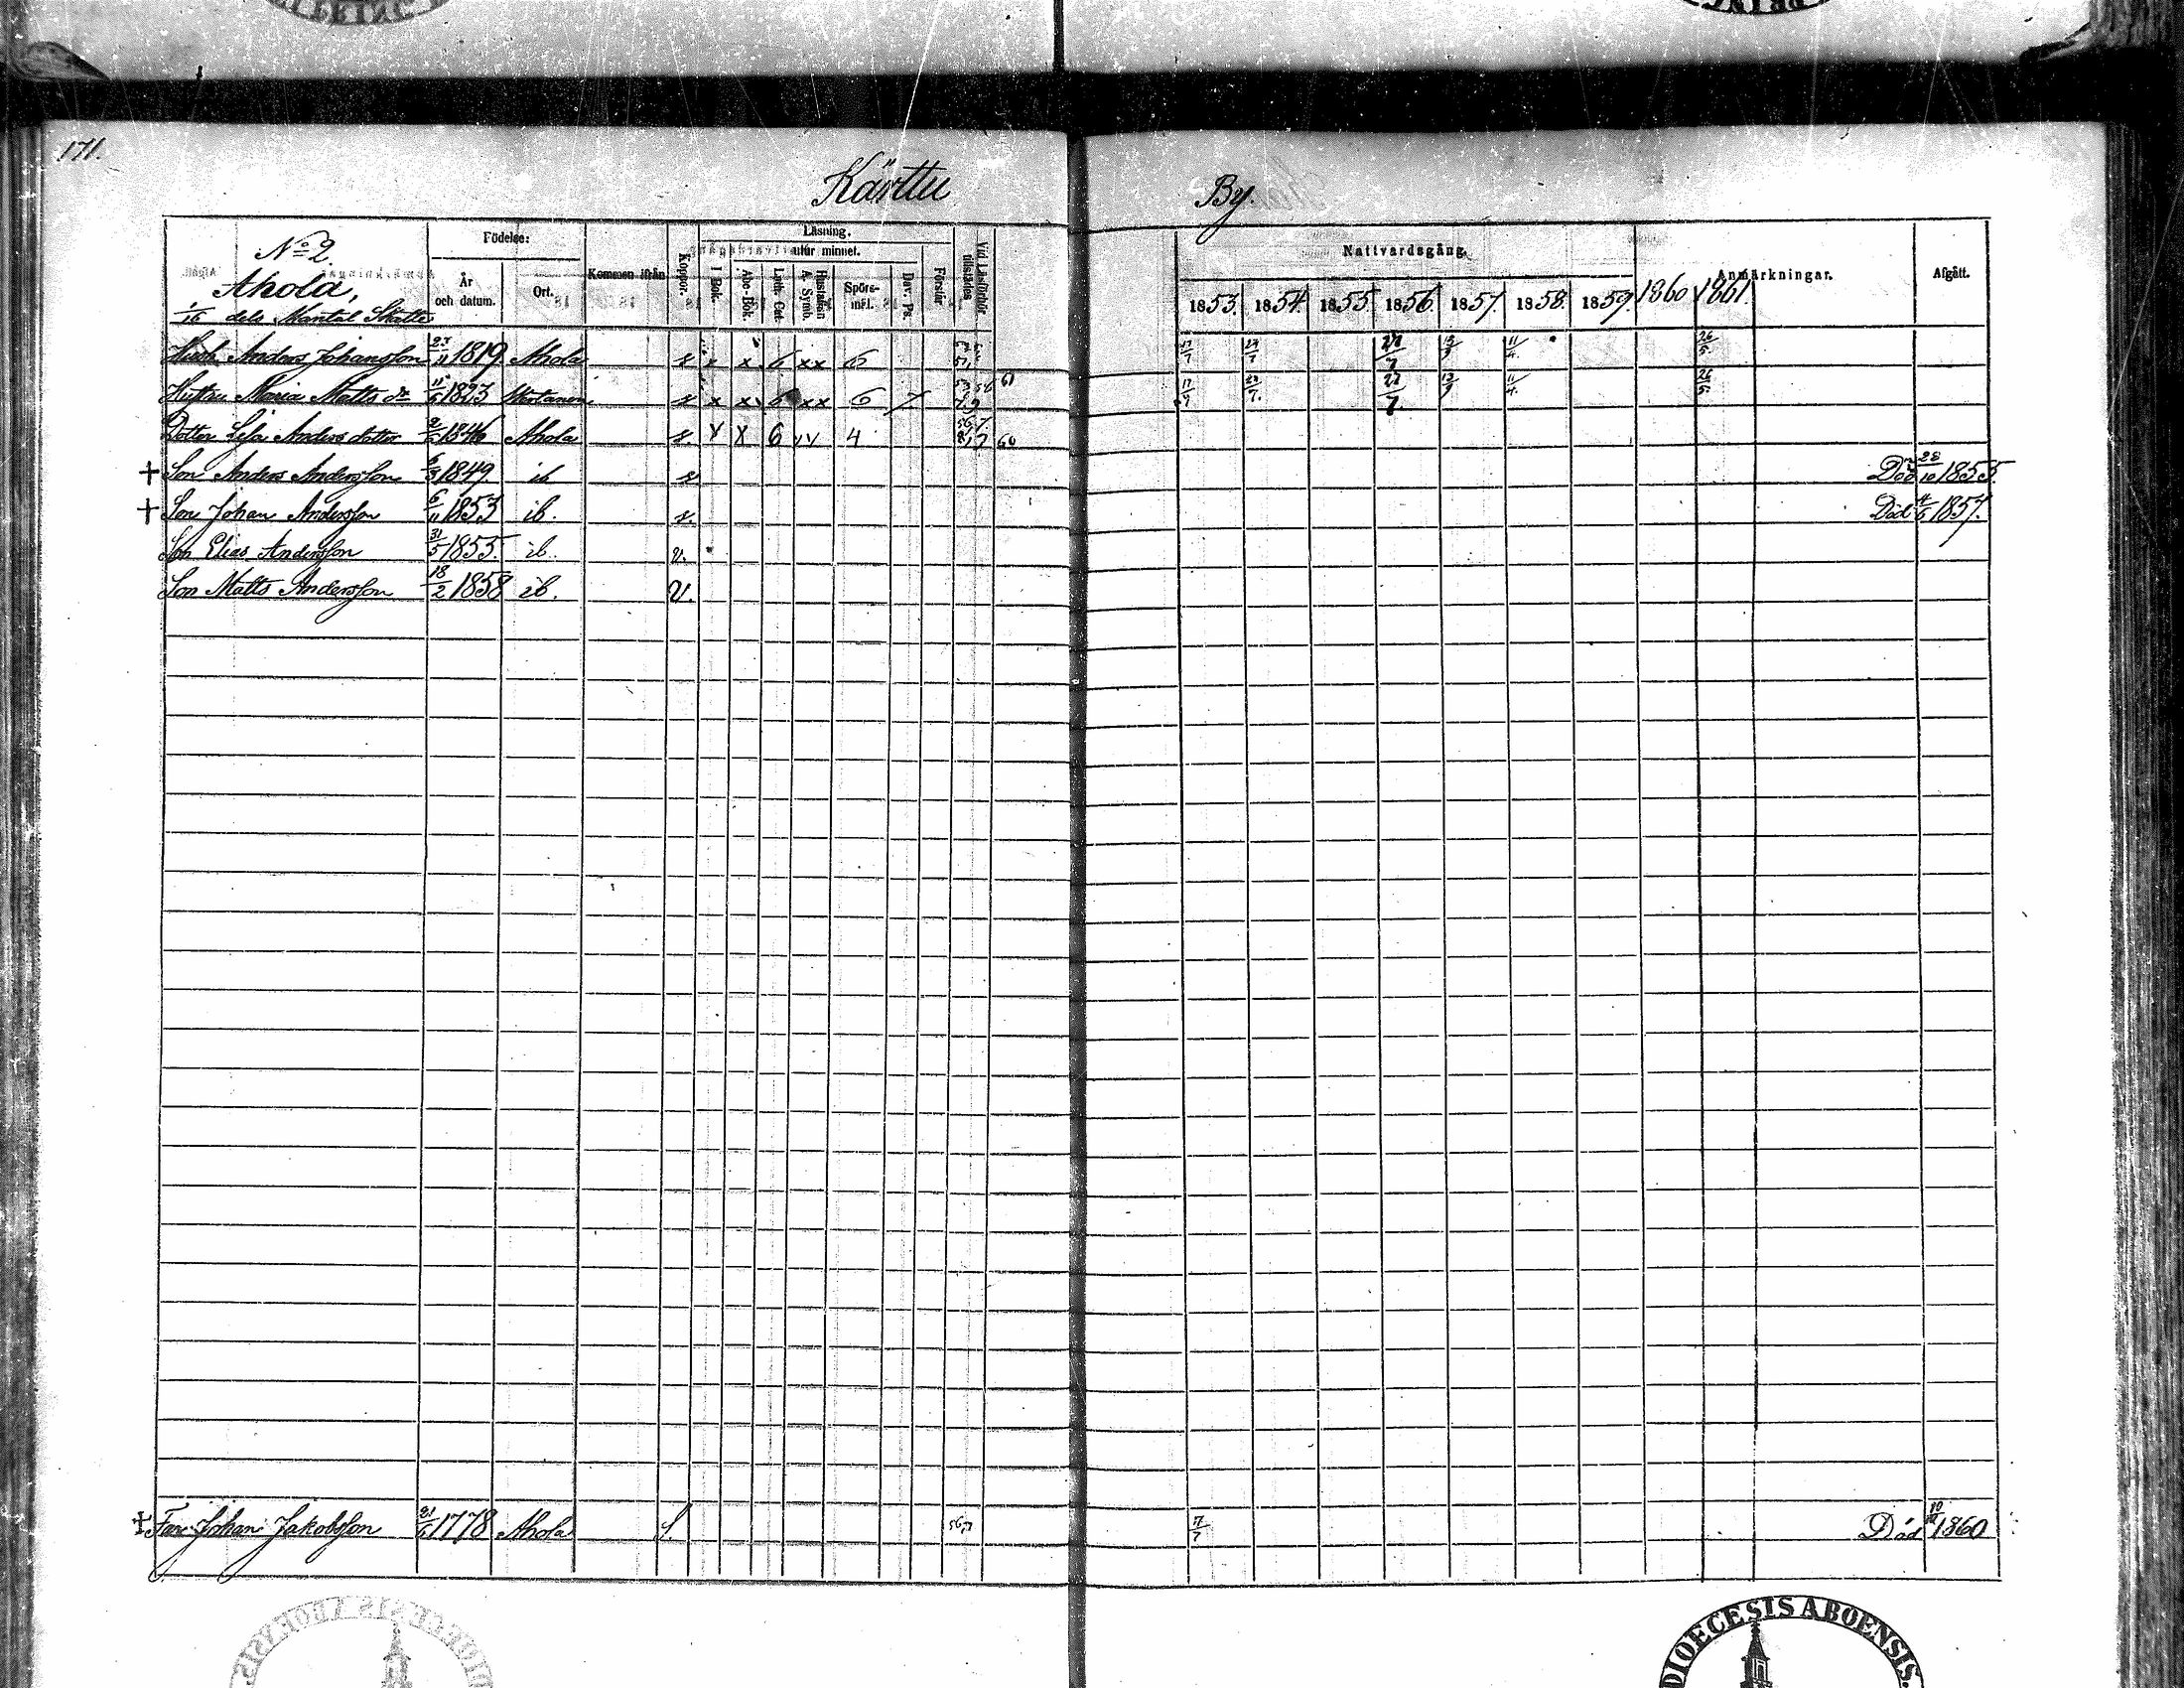 171.
Kärttu By.
No 2.
Ahola,
1/16 dels Mantal Skatte
Födelse:
År och datum.
Ort.
Kommen ifrån
Koppor.
Läsning.
utur minnet.
I Bok.
Abc-Bok.
Luth. Cat.
Hustaflan A. Symb.
Spörsmål.
Dav. Ps.
Förstår
Vid Läsförhör tillstädes
Nattvardsgång.
1853. 1854. 1855. 1856. 1857. 1858. 1859. 1860 1861.
Anmärkningar.
Afgått.
Anders Johansson 1819 Ahola x 6 xx 6 17/7 27/7 11/4 26/5
Hustru Maria Matts dr 1823 x x 6 xx 6 7. 27/7 11/4 26/5
Dotter Anders dotter 1846 Ahola 6 4 60
+ Son Anders Andersson 1849 ib Död 28/10 1855.
+ Son Johan Andersson 6/11 1853 ib. Död 1857.
Son Elias Andersson 31/5 1855. ib. v.
Son Matts Andersson 18/2 1858 ib. v.
+ Far Johan Jakobsson 1778 Ahola 7/7 Död 1860
DIOECESIS ABOENSIS.